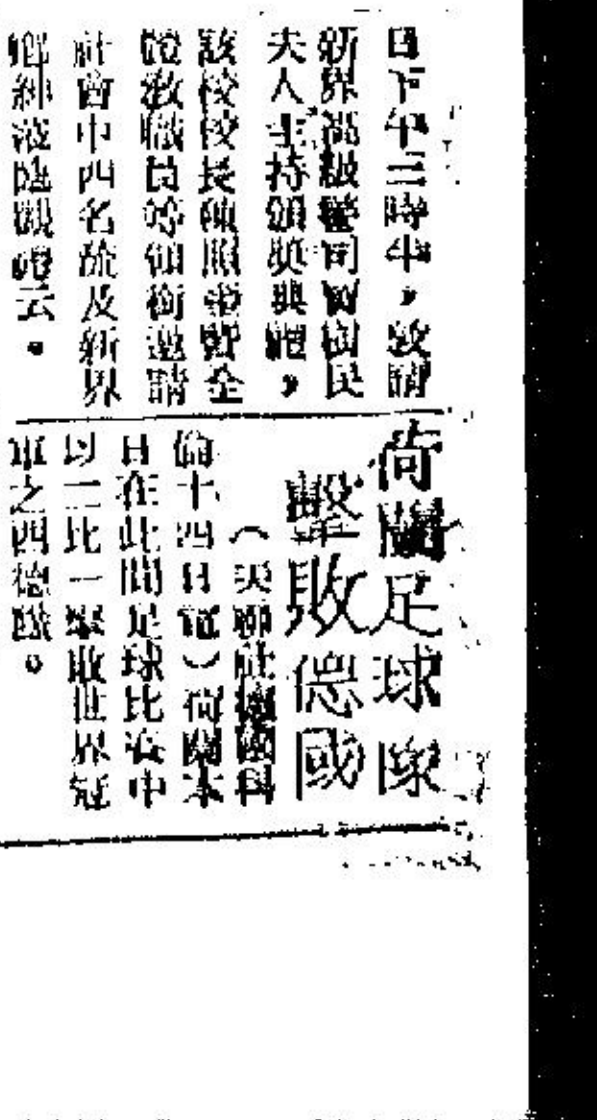 日下午三時半，敦請
新界高級警司竇樹民
夫人主持頒奬典禮，
該校校長陳照重暨全
體敎職員等個銜邀請
社會中西名流及新界
鄉紳蒞臨觀禮云。
荷蘭足球隊
擊敗德國
（天聯社德國科
倫十四日電）荷蘭本
日在此間足球比賽中
以二比一擊敗世界冠
軍之西德隊。